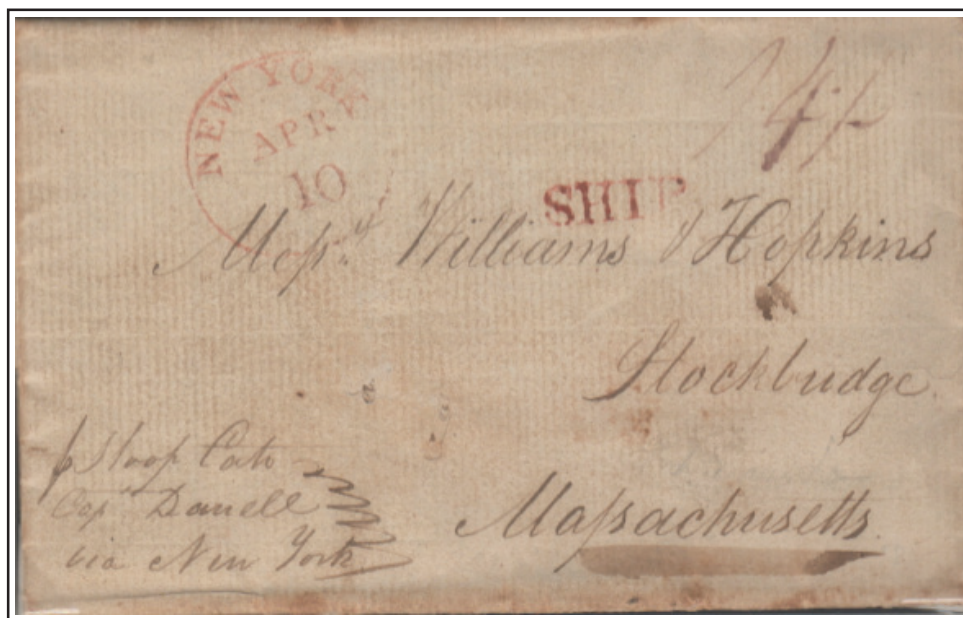 NEW YORK
APR
10
SHIP
Mess.rs Williams & Hopkins
Stockbridge.
Massachusetts.
p Sloop Cato
Cap.t Daniell
via New York